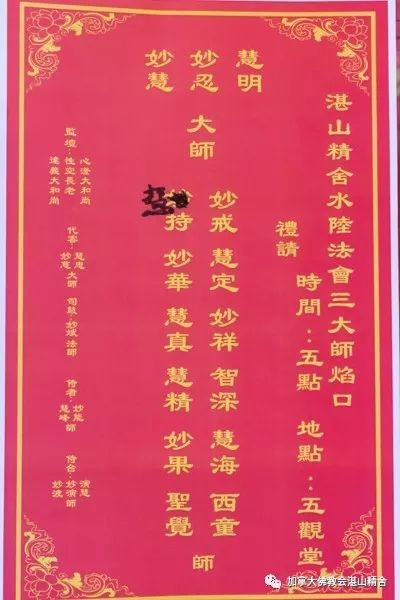 湛山精舍水陸法會三大師焰口
時間：五點 地點：五觀堂
禮請
慧明
妙忍
妙慧
大師
妙戒 慧定 妙祥 智深 慧海 西童
持 妙華 慧真 慧精 妙果 聖覺
師
心澄大和尚
監壇：性空長老
達義大和尚
慧忠
妙慈
大師
妙斌法師
侍者：妙能
慧峰
師
演慧
侍台：妙演師
妙波
加拿大佛教会湛山精舍